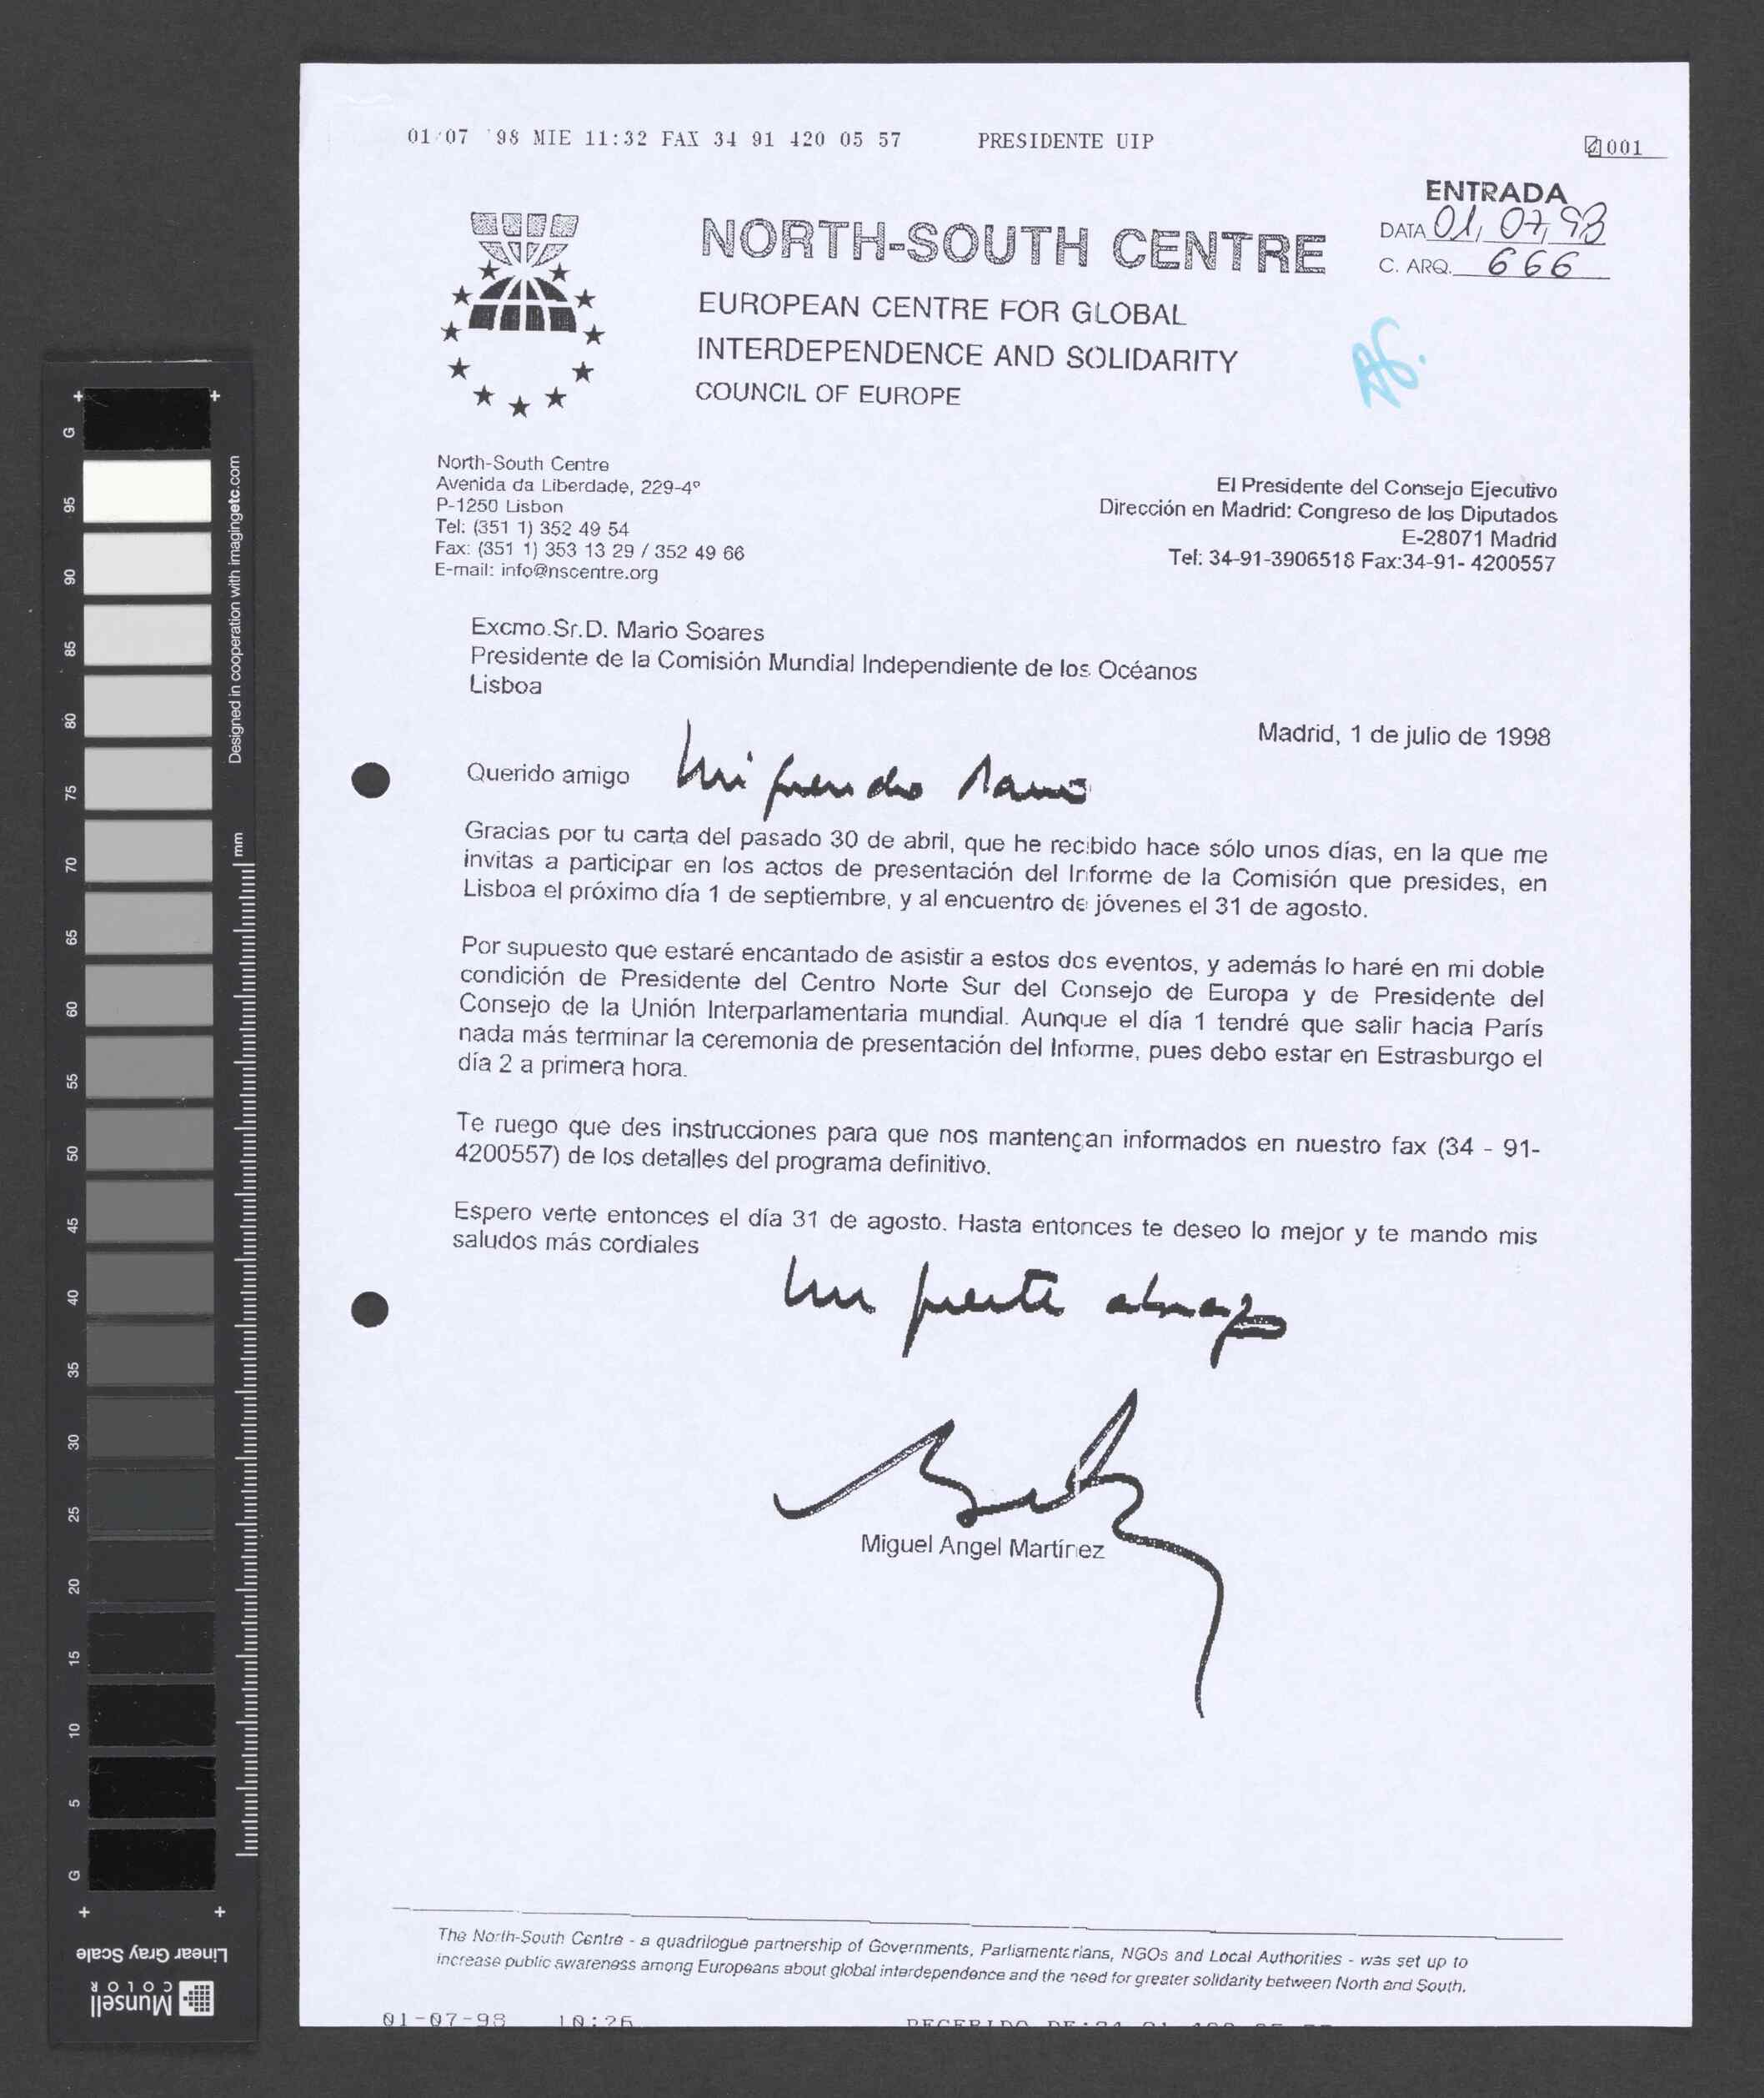 01/07 '98 MIE 11:32 FAX 34 91 420 05 57 PRESIDENTE UIP 001
ENTRADA
DATA 01, 07, 98
C. ARQ. 666
NORTH-SOUTH CENTRE
EUROPEAN CENTRE FOR GLOBAL
INTERDEPENDENCE AND SOLIDARITY
COUNCIL OF EUROPE
North-South Centre
Avenida da Liberdade, 229-4º
P-1250 Lisbon
Tel: (351 1) 352 49 54
Fax: (351 1) 353 13 29 / 352 49 66
E-mail: info@nscentre.org
El Presidente del Consejo Ejecutivo
Dirección en Madrid: Congreso de los Diputados
E-28071 Madrid
Tel: 34-91-3906518 Fax:34-91- 4200557
Excmo.Sr.D. Mario Soares
Presidente de la Comisión Mundial Independiente de los Océanos
Lisboa
Madrid, 1 de julio de 1998
Querido amigo Mi querido Mario
Gracias por tu carta del pasado 30 de abril, que he recibido hace sólo unos días, en la que me
invitas a participar en los actos de presentación del Informe de la Comisión que presides, en
Lisboa el próximo día 1 de septiembre, y al encuentro de jóvenes el 31 de agosto.
Por supuesto que estaré encantado de asistir a estos dos eventos, y además lo haré en mi doble
condición de Presidente del Centro Norte Sur del Consejo de Europa y de Presidente del
Consejo de la Unión Interparlamentaria mundial. Aunque el día 1 tendré que salir hacia París
nada más terminar la ceremonia de presentación del Informe, pues debo estar en Estrasburgo el
día 2 a primera hora.
Te ruego que des instrucciones para que nos mantengan informados en nuestro fax (34 - 91-
4200557) de los detalles del programa definitivo.
Espero verte entonces el día 31 de agosto. Hasta entonces te deseo lo mejor y te mando mis
saludos más cordiales
Un fuerte abrazo
Miguel Angel Martínez
The North-South Centre - a quadrilogue partnership of Governments, Parliamentarians, NGOs and Local Authorities - was set up to
increase public awareness among Europeans about global interdependence and the need for greater solidarity between North and South.
01-07-98 10:26 RECEBIDO DE:34 91
G 95 90 85 80 75 70 65 60 55 50 45 40 35 30 25 20 15 10 5 G
Designed in cooperation with imagingetc.com
mm
Linear Gray Scale
Munsell
COLOR